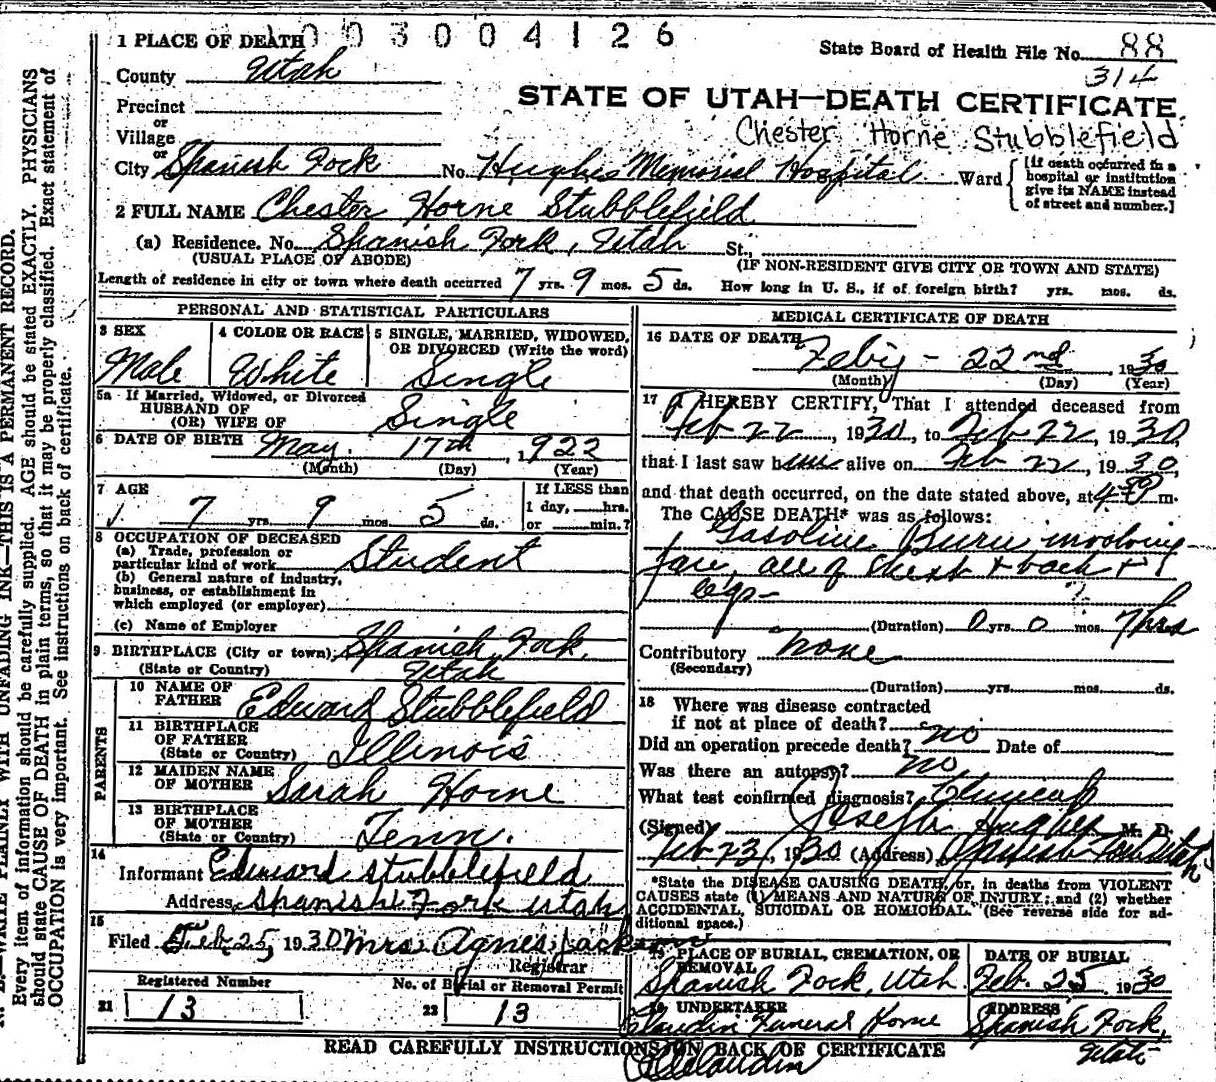 1 PLACE OF DEATH 003004126
State Board of Health File No. 88
314
County Utah
STATE OF UTAH—DEATH CERTIFICATE
Precinct
or
Village
Chester Horne Stubblefield
or
City Spanish Fork No. Hughes Memorial Hospital Ward [If death occurred in a hospital or institution give its NAME instead of street and number.]
2 FULL NAME Chester Horne Stubblefield
(a) Residence. No. Spanish Fork, Utah St.,
(USUAL PLACE OF ABODE) (IF NON-RESIDENT GIVE CITY OR TOWN AND STATE)
Length of residence in city or town where death occurred 7 yrs. 9 mos. 5 ds. How long in U. S., if of foreign birth? yrs. mos. ds.
PERSONAL AND STATISTICAL PARTICULARS
3 SEX 4 COLOR OR RACE 5 SINGLE, MARRIED, WIDOWED,
OR DIVORCED (Write the word)
Male White Single
5a If Married, Widowed, or Divorced
HUSBAND OF
(OR) WIFE OF Single
6 DATE OF BIRTH May 17th, 1922
(Month) (Day) (Year)
7 AGE If LESS than
7 yrs. 9 mos. 5 ds. 1 day, hrs.
or min.?
8 OCCUPATION OF DECEASED
(a) Trade, profession or
particular kind of work Student
(b) General nature of industry,
business, or establishment in
which employed (or employer)
(c) Name of Employer
9 BIRTHPLACE (City or town) Spanish Fork,
(State or Country) Utah
PARENTS
10 NAME OF
FATHER Edward Stubblefield
11 BIRTHPLACE
OF FATHER
(State or Country) Illinois
12 MAIDEN NAME
OF MOTHER Sarah Horne
13 BIRTHPLACE
OF MOTHER
(State or Country) Tenn.
14
Informant Edward Stubblefield
Address Spanish Fork Utah
15
Filed Feb 25, 1930 Mrs. Agnes Jackson
Registrar
Registered Number No. of Burial or Removal Permit
21 13 22 13
MEDICAL CERTIFICATE OF DEATH
16 DATE OF DEATH
Feb'y - 22nd 1930
(Month) (Day) (Year)
17 I HEREBY CERTIFY, That I attended deceased from
Feb 22, 1930, to Feb 22, 1930,
that I last saw him alive on Feb 22, 1930,
and that death occurred, on the date stated above, at m.
The CAUSE DEATH* was as follows:
Gasoline Burn involving
face, all of chest + back +
legs -
(Duration) 0 yrs. 0 mos. 7 hrs
Contributory none
(Secondary)
(Duration) yrs. mos. ds.
18 Where was disease contracted
if not at place of death? no
Did an operation precede death? Date of
Was there an autopsy? no
What test confirmed diagnosis? Clinical
(Signed) Joseph Hughes M. D.
Feb 23, 1930 (Address) Spanish Fork Utah
*State the DISEASE CAUSING DEATH, or, in deaths from VIOLENT
CAUSES state (1) MEANS AND NATURE OF INJURY; and (2) whether
ACCIDENTAL, SUICIDAL OR HOMICIDAL. (See reverse side for ad-
ditional space.)
19 PLACE OF BURIAL, CREMATION, OR REMOVAL DATE OF BURIAL
Spanish Fork, Utah Feb. 25 1930
20 UNDERTAKER ADDRESS
Claudin Funeral Home Spanish Fork,
Utah
READ CAREFULLY INSTRUCTIONS ON BACK OF CERTIFICATE
Claudin
WRITE PLAINLY WITH UNFADING INK—THIS IS A PERMANENT RECORD.
Every item of information should be carefully supplied. AGE should be stated EXACTLY. PHYSICIANS
should state CAUSE OF DEATH in plain terms, so that it may be properly classified. Exact statement of
OCCUPATION is very important. See instructions on back of certificate.